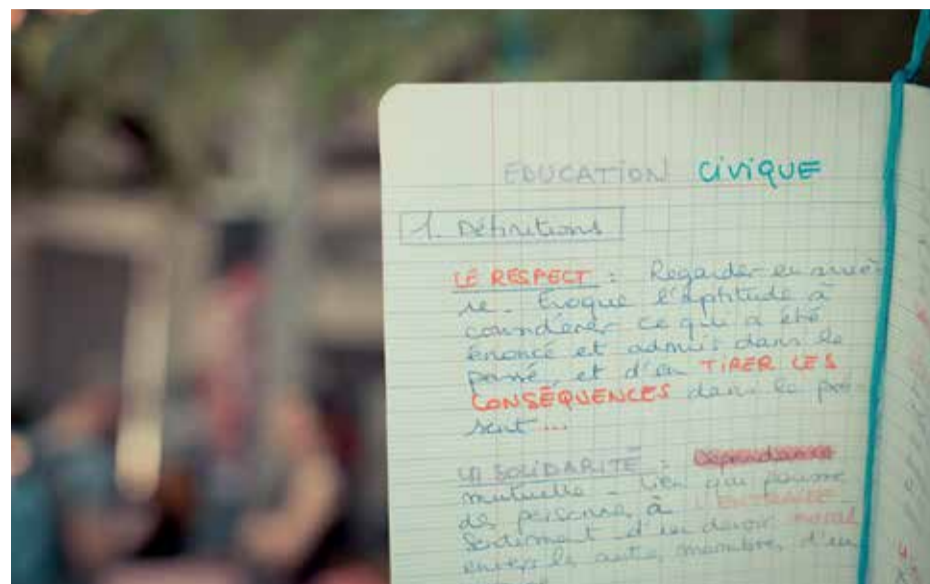 EDUCATION CIVIQUE
1. Définitions
LE RESPECT : Regarder en arriè-
re. Évoque l'aptitude à
considérer ce qui a été
énoncé et admis dans le
passé, et d'en TIRER LES
CONSÉQUENCES dans le pré-
sent...
LA SOLIDARITÉ : Dépendance
mutuelle - lien qui pousse
des personnes à L'ENTRAIDE
Sentiment d'un devoir moral
envers les autres membres d'un